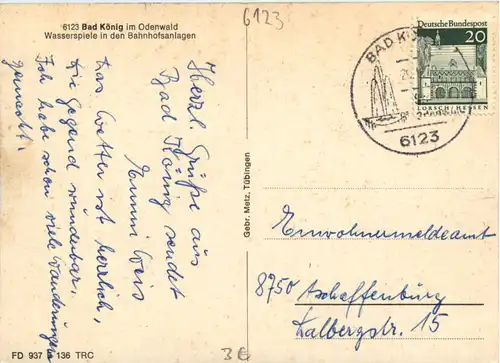 6123 Bad König im Odenwald
Wasserspiele in den Bahnhofsanlagen
6123
Herzl. Grüße aus
Bad König sendet
Emmi Weis
Das Wetter ist herrlich,
die Gegend wunderbar.
Ich habe schon viele Wanderungen
gemacht.
Gebr. Metz, Tübingen
Deutsche Bundespost
20
LORSCH/HESSEN
BAD KÖ
6123
Einwohnermeldeamt
8750 Aschaffenburg
Dalbergstr. 15
FD 937 136 TRC
3E